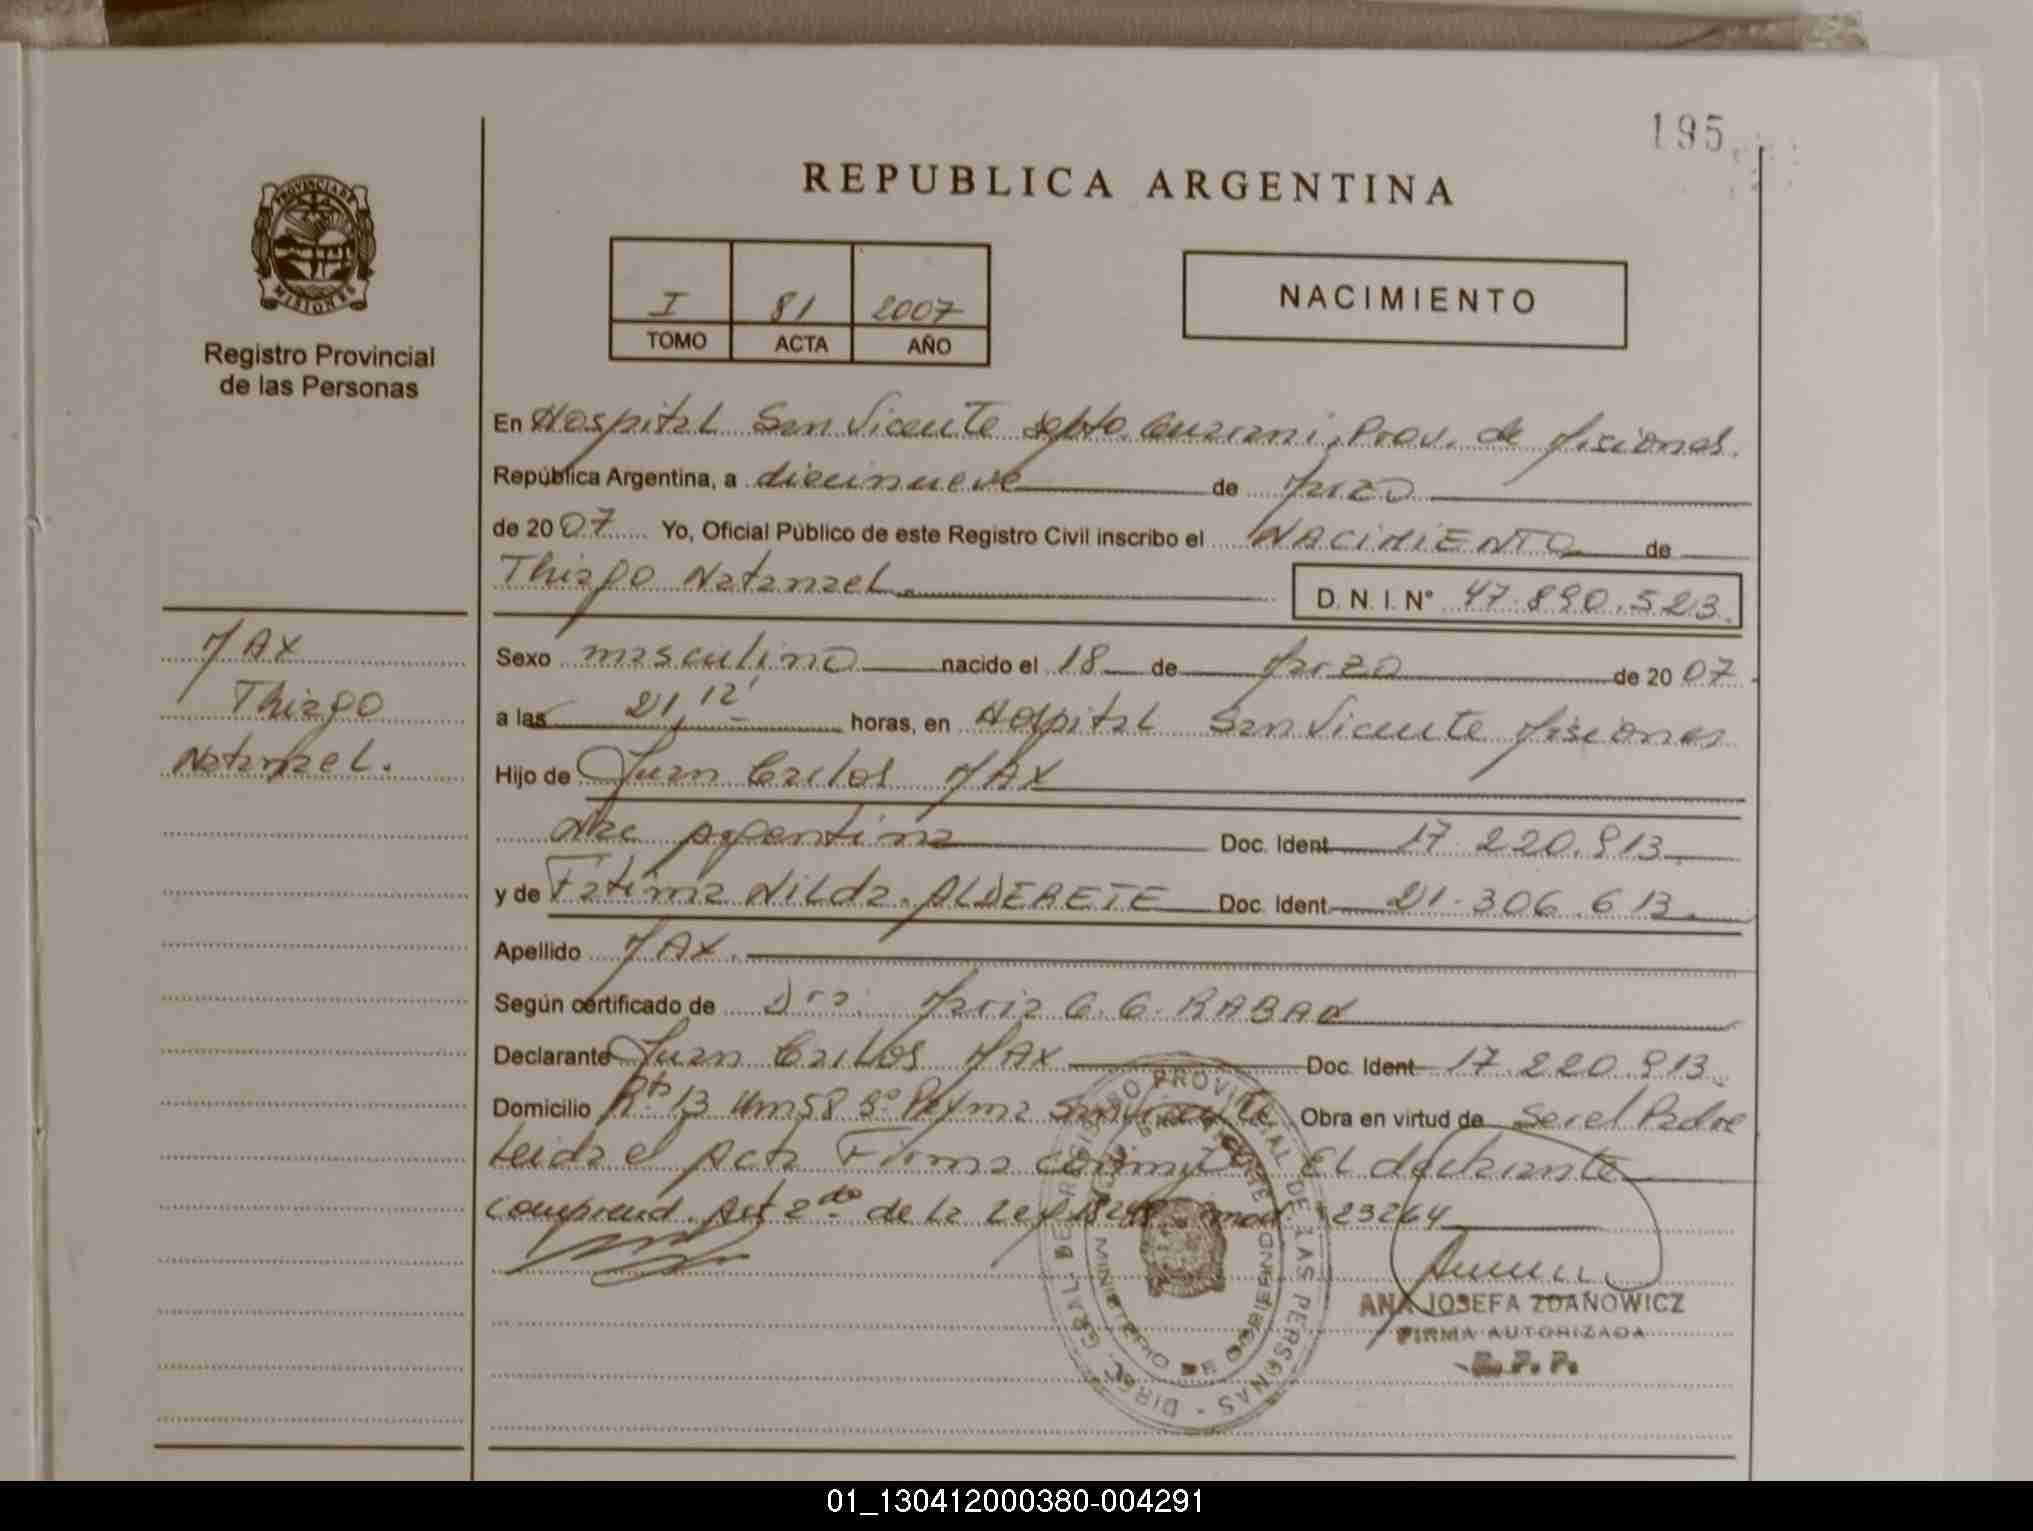 195
REPUBLICA ARGENTINA
PROVINCIA DE
MISIONES
Registro Provincial
de las Personas
I 81 2007
TOMO ACTA AÑO
NACIMIENTO
En Hospital San Vicente Depto. Guarani, Prov. de Misiones.
República Argentina, a diecinueve de Marzo
de 2007 Yo, Oficial Público de este Registro Civil inscribo el NACIMIENTO de
Thiago Natanael
D. N. I. N° 47.890.523.
MAX
Thiago
Natanael.
Sexo masculino nacido el 18 de Marzo de 2007
a las 21,12' horas, en Hospital San Vicente Misiones
Hijo de Juan Carlos MAX
Nac Argentina Doc. Ident. 17.220.913
y de Fatima Nilda. ALDERETE Doc. Ident. 21.306.613.
Apellido MAX.
Según certificado de Dra. Maria G. G. RABAN
Declarante Juan Carlos MAX Doc. Ident. 17.220.913.
Domicilio Rta 13 Km 58 San Vicente Obra en virtud de Ser el Padre
Leida el Acta Firma conmigo El declarante
Comprend. Art 2do de la Ley 18248 mod. 23264
DIREC. GRAL. DE REGISTRO PROVINCIAL DE LAS PERSONAS
MINISTERIO DE GOBIERNO
SAN VICENTE
ANA JOSEFA ZDANOWICZ
FIRMA AUTORIZADA
R. P. P.
01_130412000380-004291